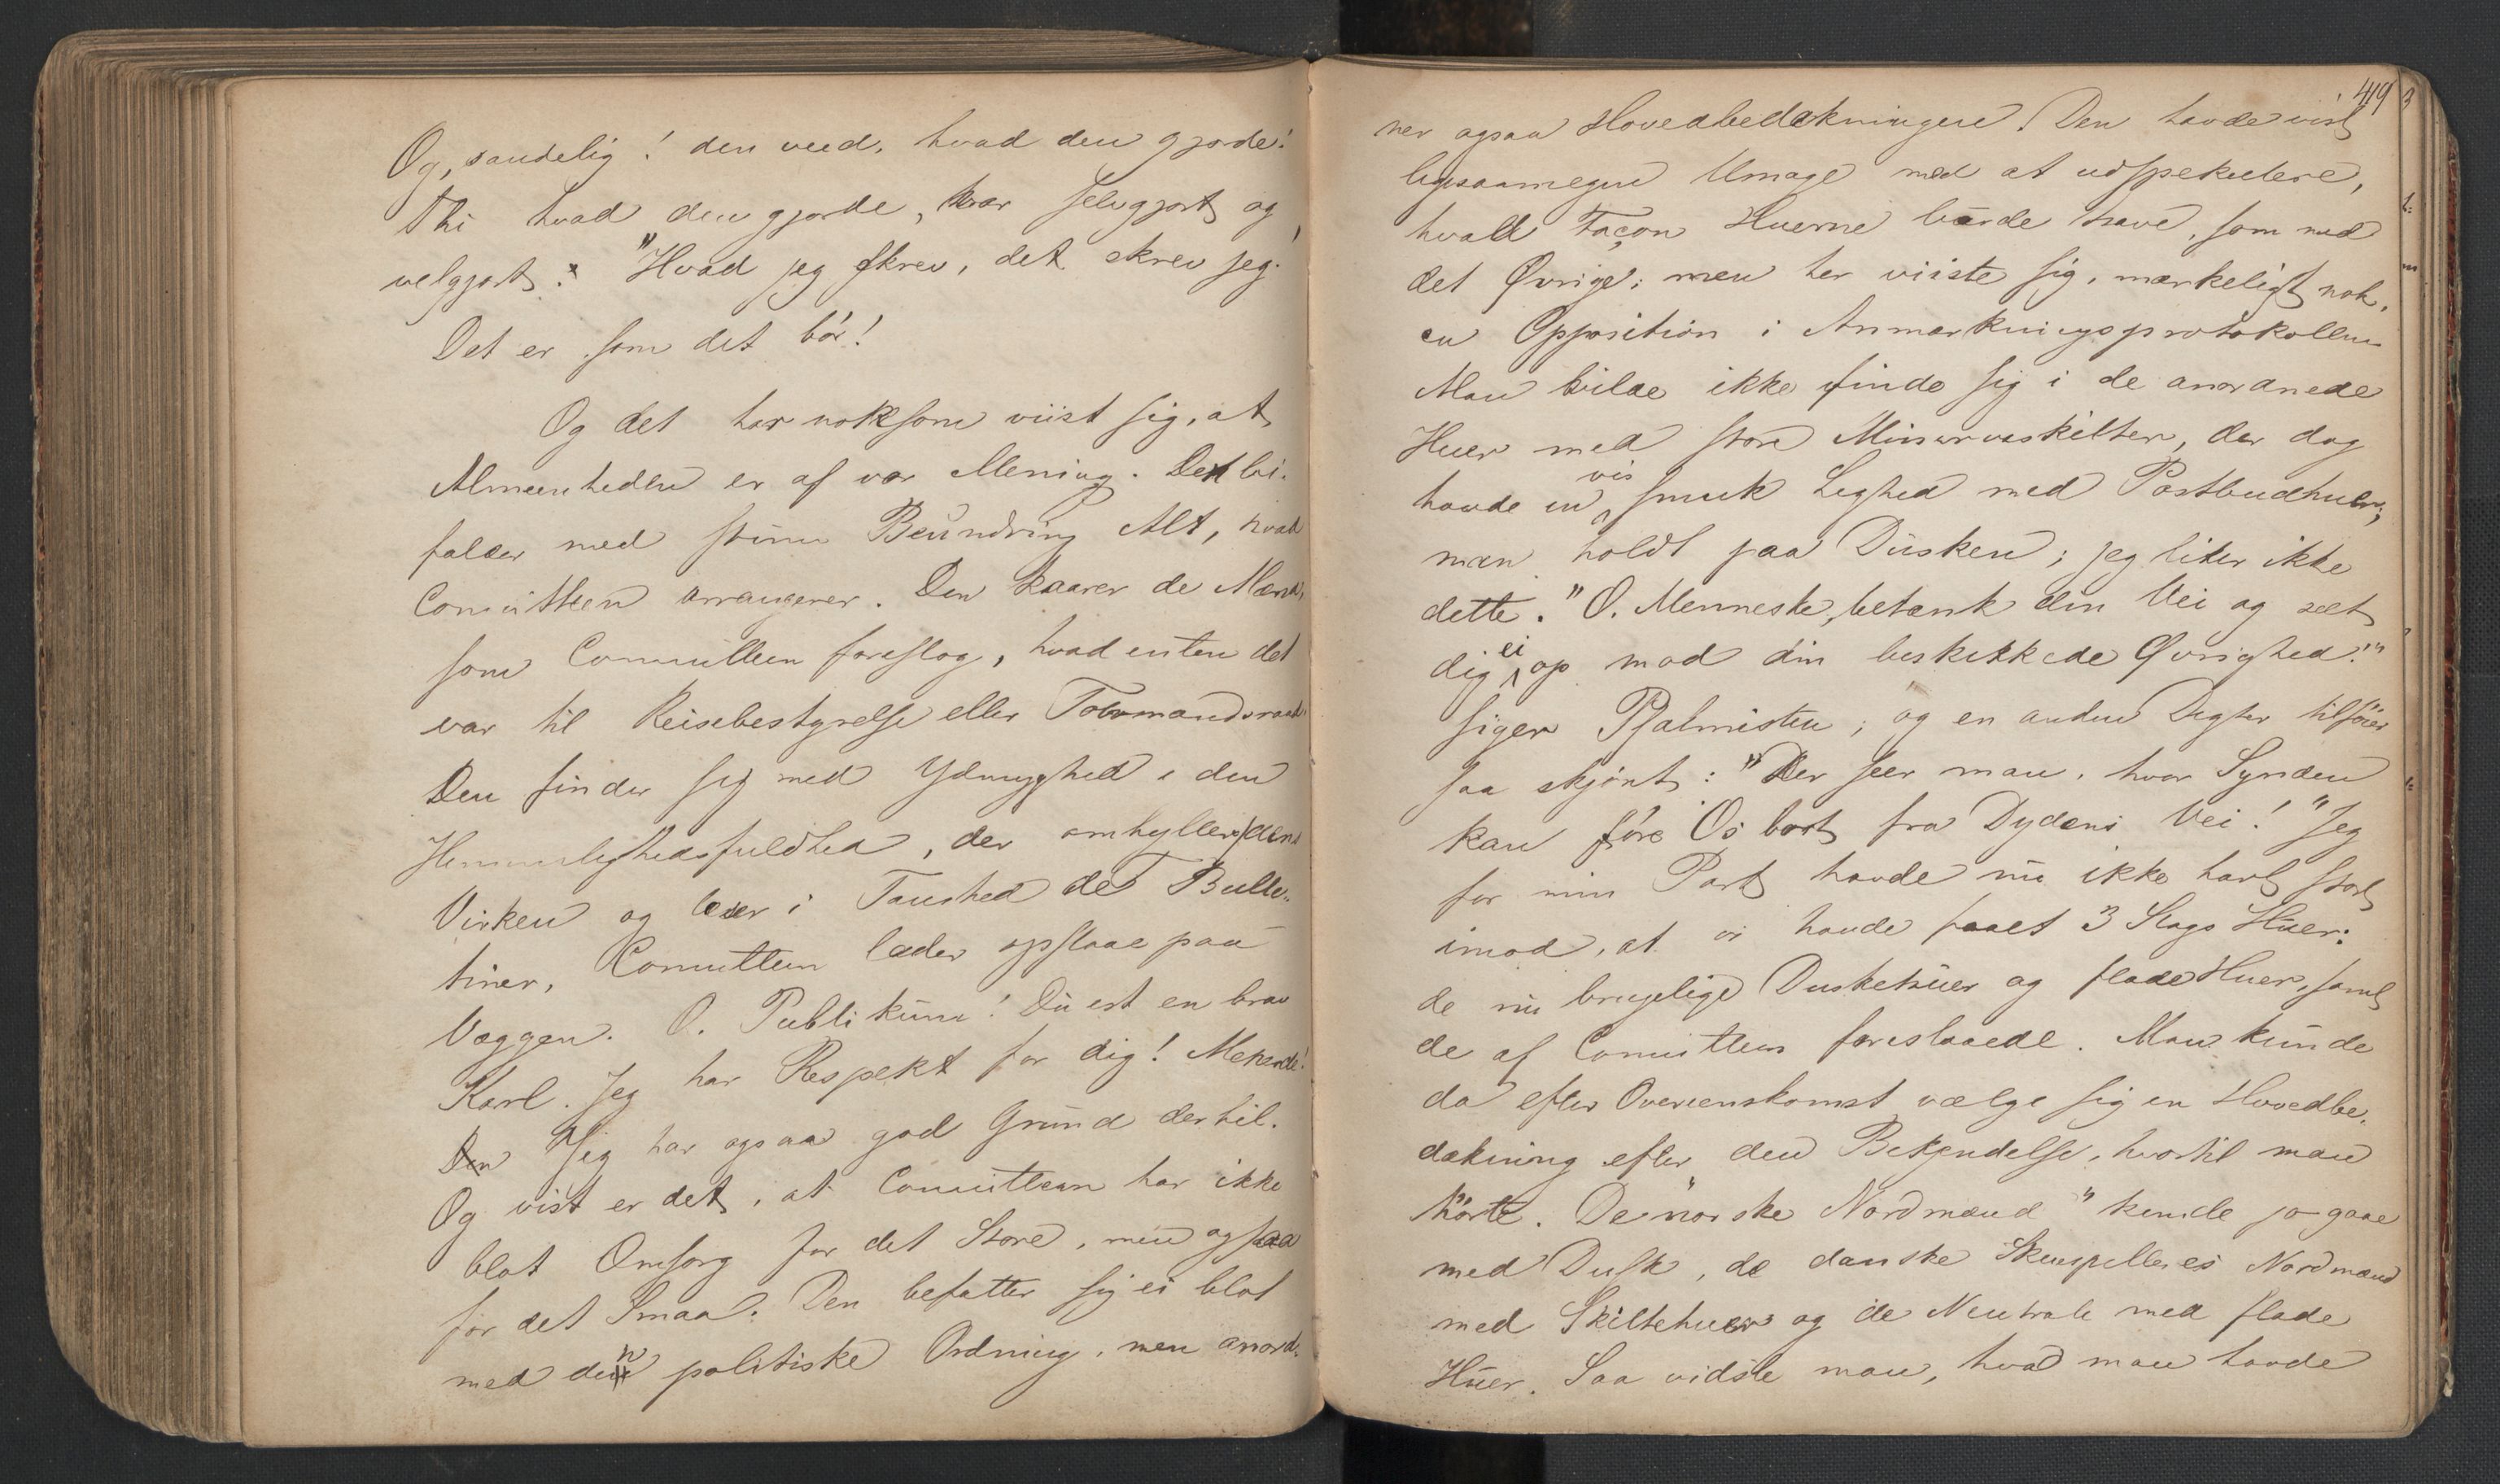 Og, sandelig! den veed, hvad den gjorde!
Thi hvad den gjorde, var selvgjort og
velgjort: "Hvad jeg skrev, det skrev jeg."
Det er som det bör!
Og det har noksom viist sig, at
Almeenheden er af vor Mening. Den bi-
falder med stum Beundring Alt, hvad
Comitteen arrangerer. Den kaarer de Mænd,
som Committeen foreslog, hvad enten det
var til Reisebestyrelse eller Tolvmandsraad.
Den finder sig med Ydmyghed i den
Hemmelighedsfuldhed, der omhyller dens
Virken og læser i Taushed de Bulle-
tiner, Committeen lader opslaae paa
Væggen. O. Publikum! Du est en brav
Karl. Jeg har Respekt for dig!
Jeg har ogsaa god Grund dertil.
Og vist er det, at Committeen har ikke
blot Omsorg for det Store, men ogsaa
for det Smaa. Den befatter sig ei blot
med den politiske Ordning, men anord-
419
ner ogsaa Hovedbedækningen. Den havde vist
ligesaamegen Umage med at udspekulere,
hvad Façon Huerne burde have, som med
det Øvrige; men her viiste sig, mærkeligt nok,
en Opposition i Anmærkningsprotokollen.
Man vilde ikke finde sig i de anordnede
Huer med store Minervaskilter, der dog
havde en vis smuk Lighed med Postbudhuer;
man holdt paa Dusken; jeg liker ikke
dette. "O. Menneske, betænk din Vei og sæt
dig ei op mod din beskikkede Øvrighed!"
siger Psalmisten; og en anden Digter tilföier
saa skjönt: "Der seer man, hvor Synden
kan före Os bort fra Dydens Vei!" Jeg
for min Part havde nu ikke havt stort
imod, at vi havde faaet 3 Slags Huer:
de nu brugelige Duskehuer og flade Huer, samt
de af Comitteen foreslaaede. Man kunde
da efter Overeenskomst vælge sig en Hovedbe-
dækning efter den Bekjendelse, hvortil man
hörte. De "norske Nordmænd" kunde jo gaae
med Dusk, de danske Skuespilleres Nordmænd
med Skiltehuer og de Neutrale med flade
Huer. Saa vidste man, hvad man havde